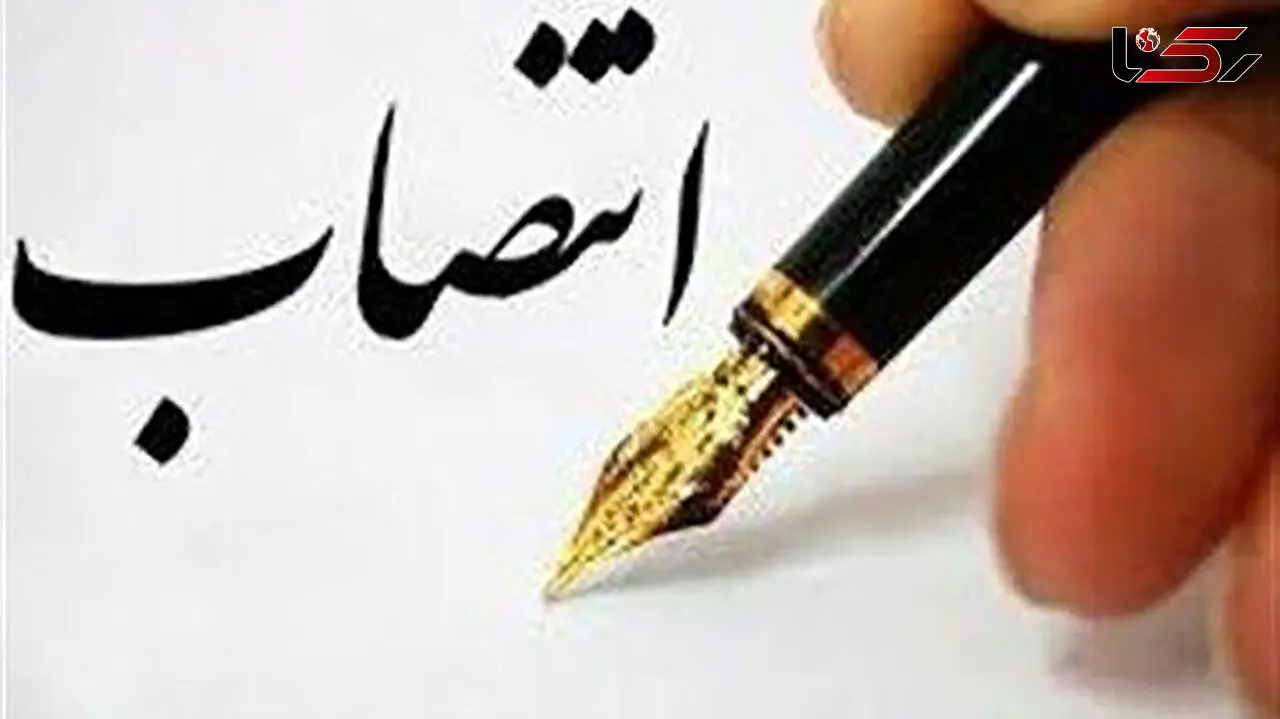 رکنا
انتصاب